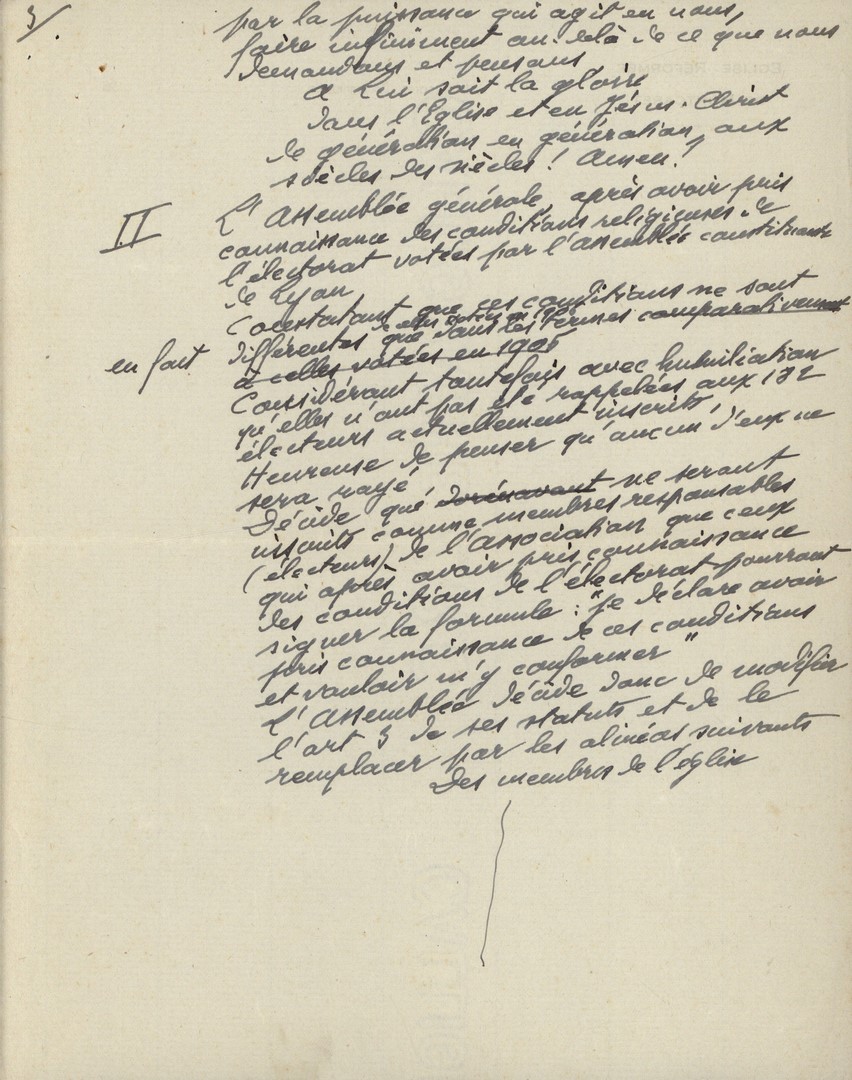 3/
par la puissance qui agit en nous,
faire infiniment au-delà de ce que nous
demandons et pensons
A Lui soit la gloire
dans l'Eglise et en Jésus-Christ
de génération en génération, aux
siècles des siècles! Amen!
II L'Assemblée générale, après avoir pris
connaissance des conditions religieuses de
l'électorat votées par l'Assemblée constituante
de Lyon
Constatant que ces conditions ne sont
de celles votées en
en fait différentes que dans les termes comparativement
à celles votées en 1905
Considérant toutefois avec humiliation
qu'elles n'ont pas été rappelées aux 172
électeurs actuellement inscrits
Heureuse de penser qu'aucun d'eux ne
sera rayé
Décide que dorénavant ne seront
inscrits comme membres responsables
(électeurs) de l'Association que ceux
qui après avoir pris connaissance
des conditions de l'électorat pourront
signer la formule : "je déclare avoir
pris connaissance de ces conditions
et vouloir m'y conformer"
L'Assemblée décide donc de modifier
l'art 3 de ses statuts et de le
remplacer par les alinéas suivants
Des membres de l'église